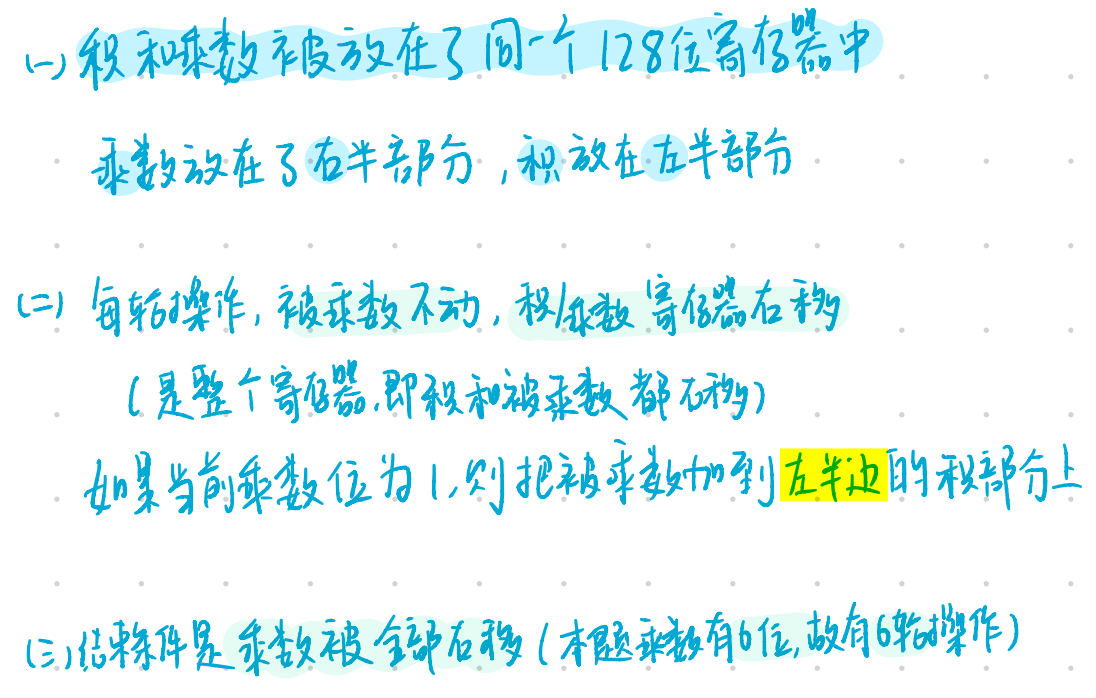 (一) 积和乘数被放在了同一个128位寄存器中
乘数放在了右半部分,积放在左半部分
(二) 每轮操作,被乘数不动,积/乘数寄存器右移
(是整个寄存器,即积和被乘数都右移)
如果当前乘数位为1,则把被乘数加到左半边的积部分上
(三)结束条件是乘数被全部右移(本题乘数有6位,故有6轮操作)